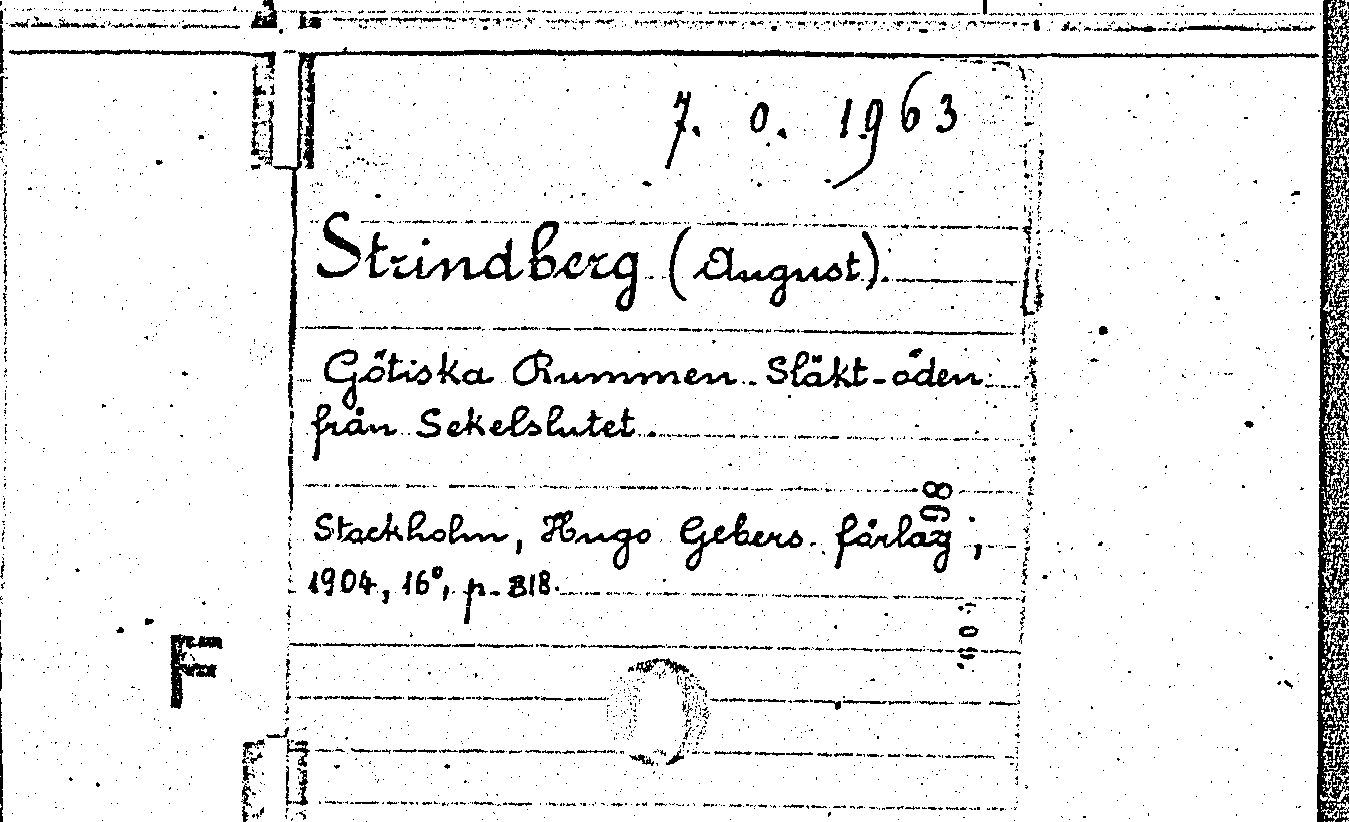 7. o. 1963
Strindberg (August).
Götiska Rummen. Släkt-öden
från Sekelslutet.
Stockholm, Hugo Gebers. förlag ;
1904, 16°, p. 318.
98
F